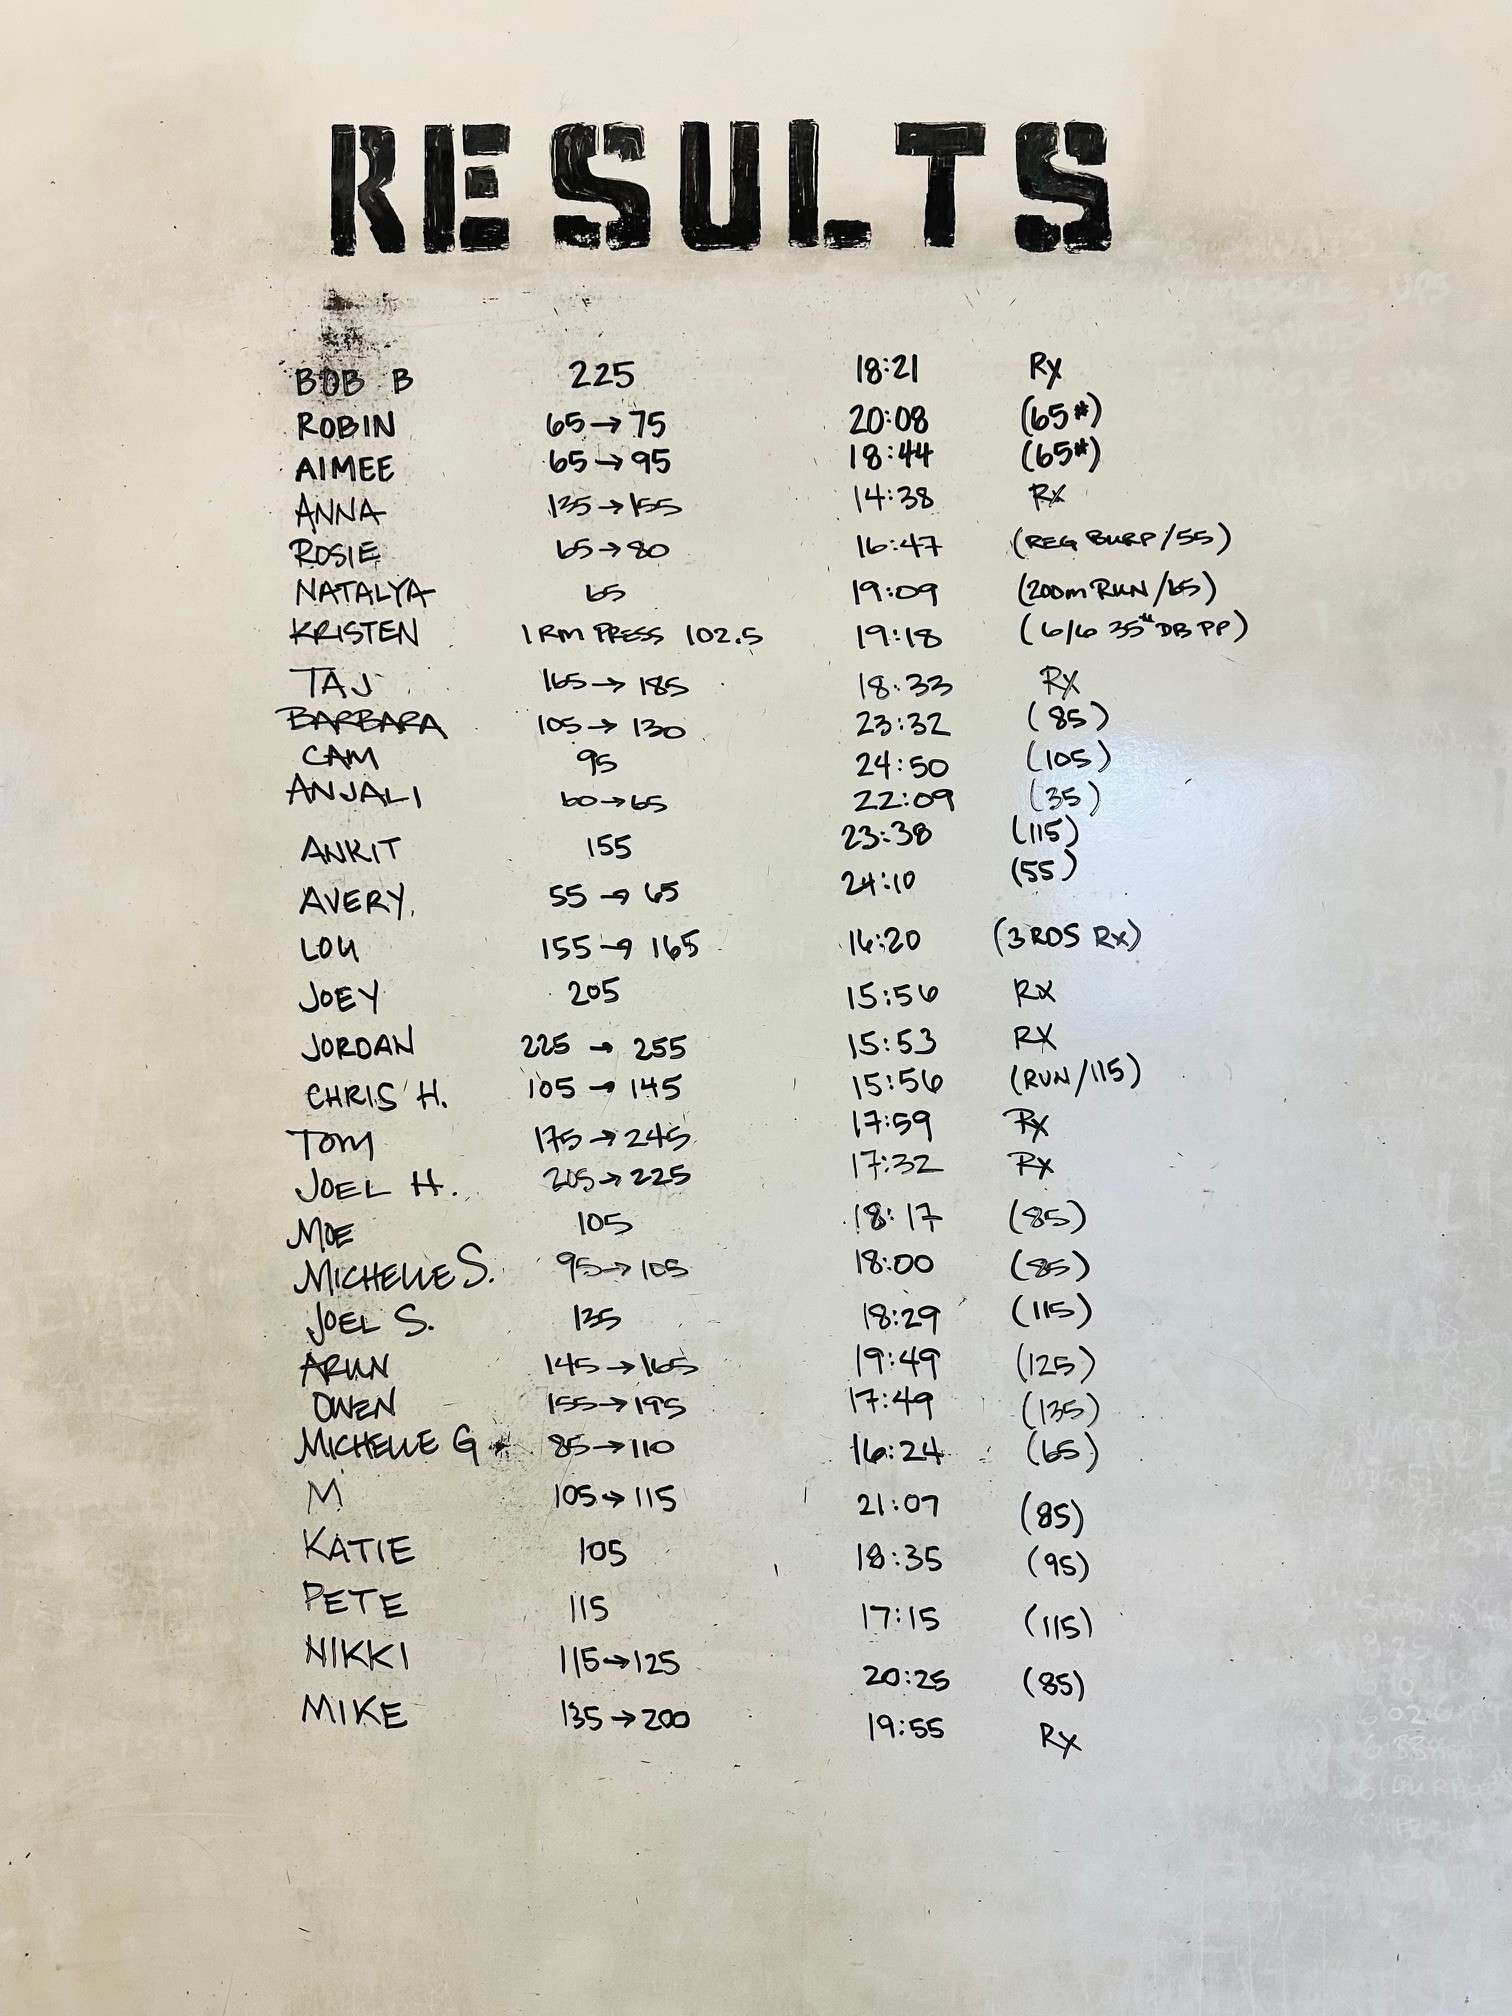 RESULTS
BOB B 225 18:21 Rx
ROBIN 65→75 20:08 (65#)
AIMEE 65→95 18:44 (65#)
ANNA 135→155 14:38 Rx
ROSIE 65→80 16:47 (REG BURP/55)
NATALYA 65 19:09 (200m RUN/65)
KRISTEN 1RM PRESS 102.5 19:18 (6/6 35# DB PP)
TAJ 165→185 18:33 Rx
BARBARA 105→130 23:32 (85)
CAM 95 24:50 (105)
ANJALI 60→65 22:09 (35)
ANKIT 155 23:38 (115)
AVERY. 55→65 24:10 (55)
LOU 155→165 16:20 (3 RDS Rx)
JOEY 205 15:56 Rx
JORDAN 225→255 15:53 RX
CHRIS H. 105→145 15:56 (RUN/115)
TOM 175→245 17:59 Rx
JOEL H. 205→225 17:32 Rx
MOE 105 18:17 (85)
MICHELLE S. 95→105 18:00 (85)
JOEL S. 135 18:29 (115)
ARUN 145→165 19:49 (125)
OWEN 155→195 17:49 (135)
MICHELLE G 85→110 16:24 (65)
M 105→115 21:07 (85)
KATIE 105 18:35 (95)
PETE 115 17:15 (115)
NIKKI 115→125 20:25 (85)
MIKE 135→200 19:55 Rx